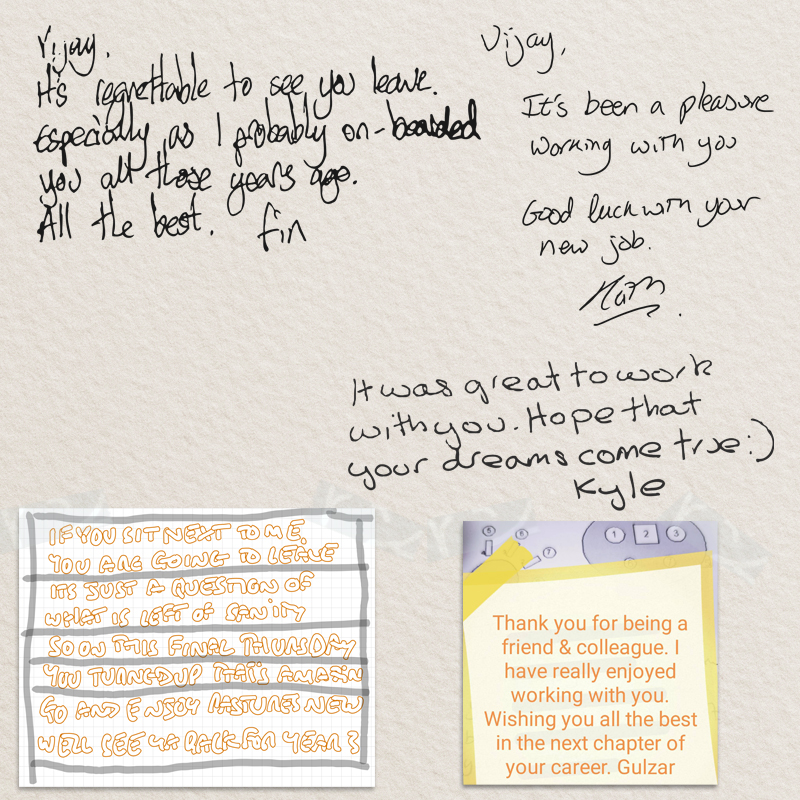 Vijay,
It's regrettable to see you leave.
especially as I probably on-boarded
you all those years ago.
All the best. fin
Vijay,
It's been a pleasure
working with you
Good luck with your
new job.
It was great to work
with you. Hope that
your dreams come true :)
Kyle
IF YOU SIT NEXT TO ME.
YOU ARE GOING TO LEAVE
ITS JUST A QUESTION OF
WHAT IS LEFT OF SANITY
SO ON THIS FINAL THURSDAY
YOU TURNEDUP THATS AMAZIN
GO AND ENJOY PASTURES NEW
WELL SEE YA BACK FOR YEAR 3
5
6
7
1 2 3
Thank you for being a
friend & colleague. I
have really enjoyed
working with you.
Wishing you all the best
in the next chapter of
your career. Gulzar